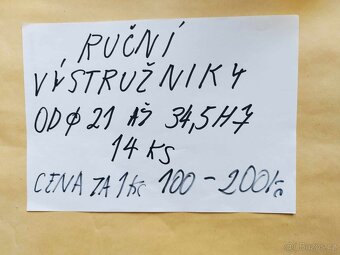 RUČNÍ
VÝSTRUŽNIKY
OD Ø 21 AŽ 34,5 H7
14 KS
CENA ZA 1 KS 100 - 200 Kč